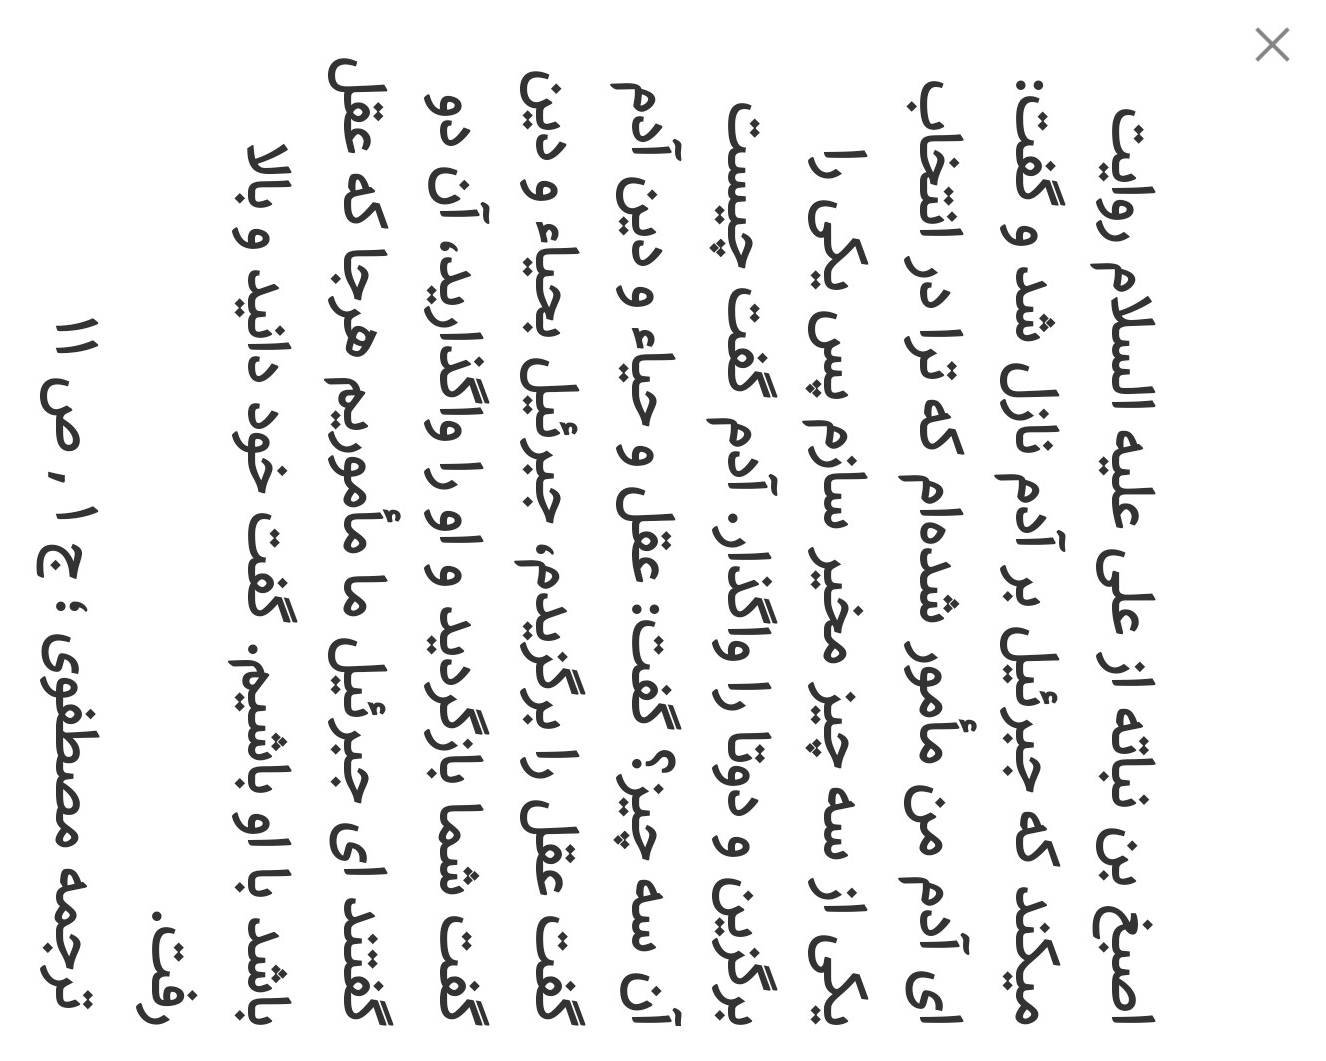 اصبغ بن نباته از علی علیه السلام روایت
میکند که جبرئیل بر آدم نازل شد و گفت:
ای آدم من مأمور شده‌ام که ترا در انتخاب
یکی از سه چیز مخیر سازم پس یکی را
برگزین و دوتا را واگذار. آدم گفت چیست
آن سه چیز؟ گفت: عقل و حیاء و دین آدم
گفت عقل را برگزیدم، جبرئیل بحیاء و دین
گفت شما بازگردید و او را واگذارید، آن دو
گفتند ای جبرئیل ما مأموریم هرجا که عقل
باشد با او باشیم. گفت خود دانید و بالا
رفت.
ترجمه مصطفوی ؛ ج ۱ , ص ۱۱